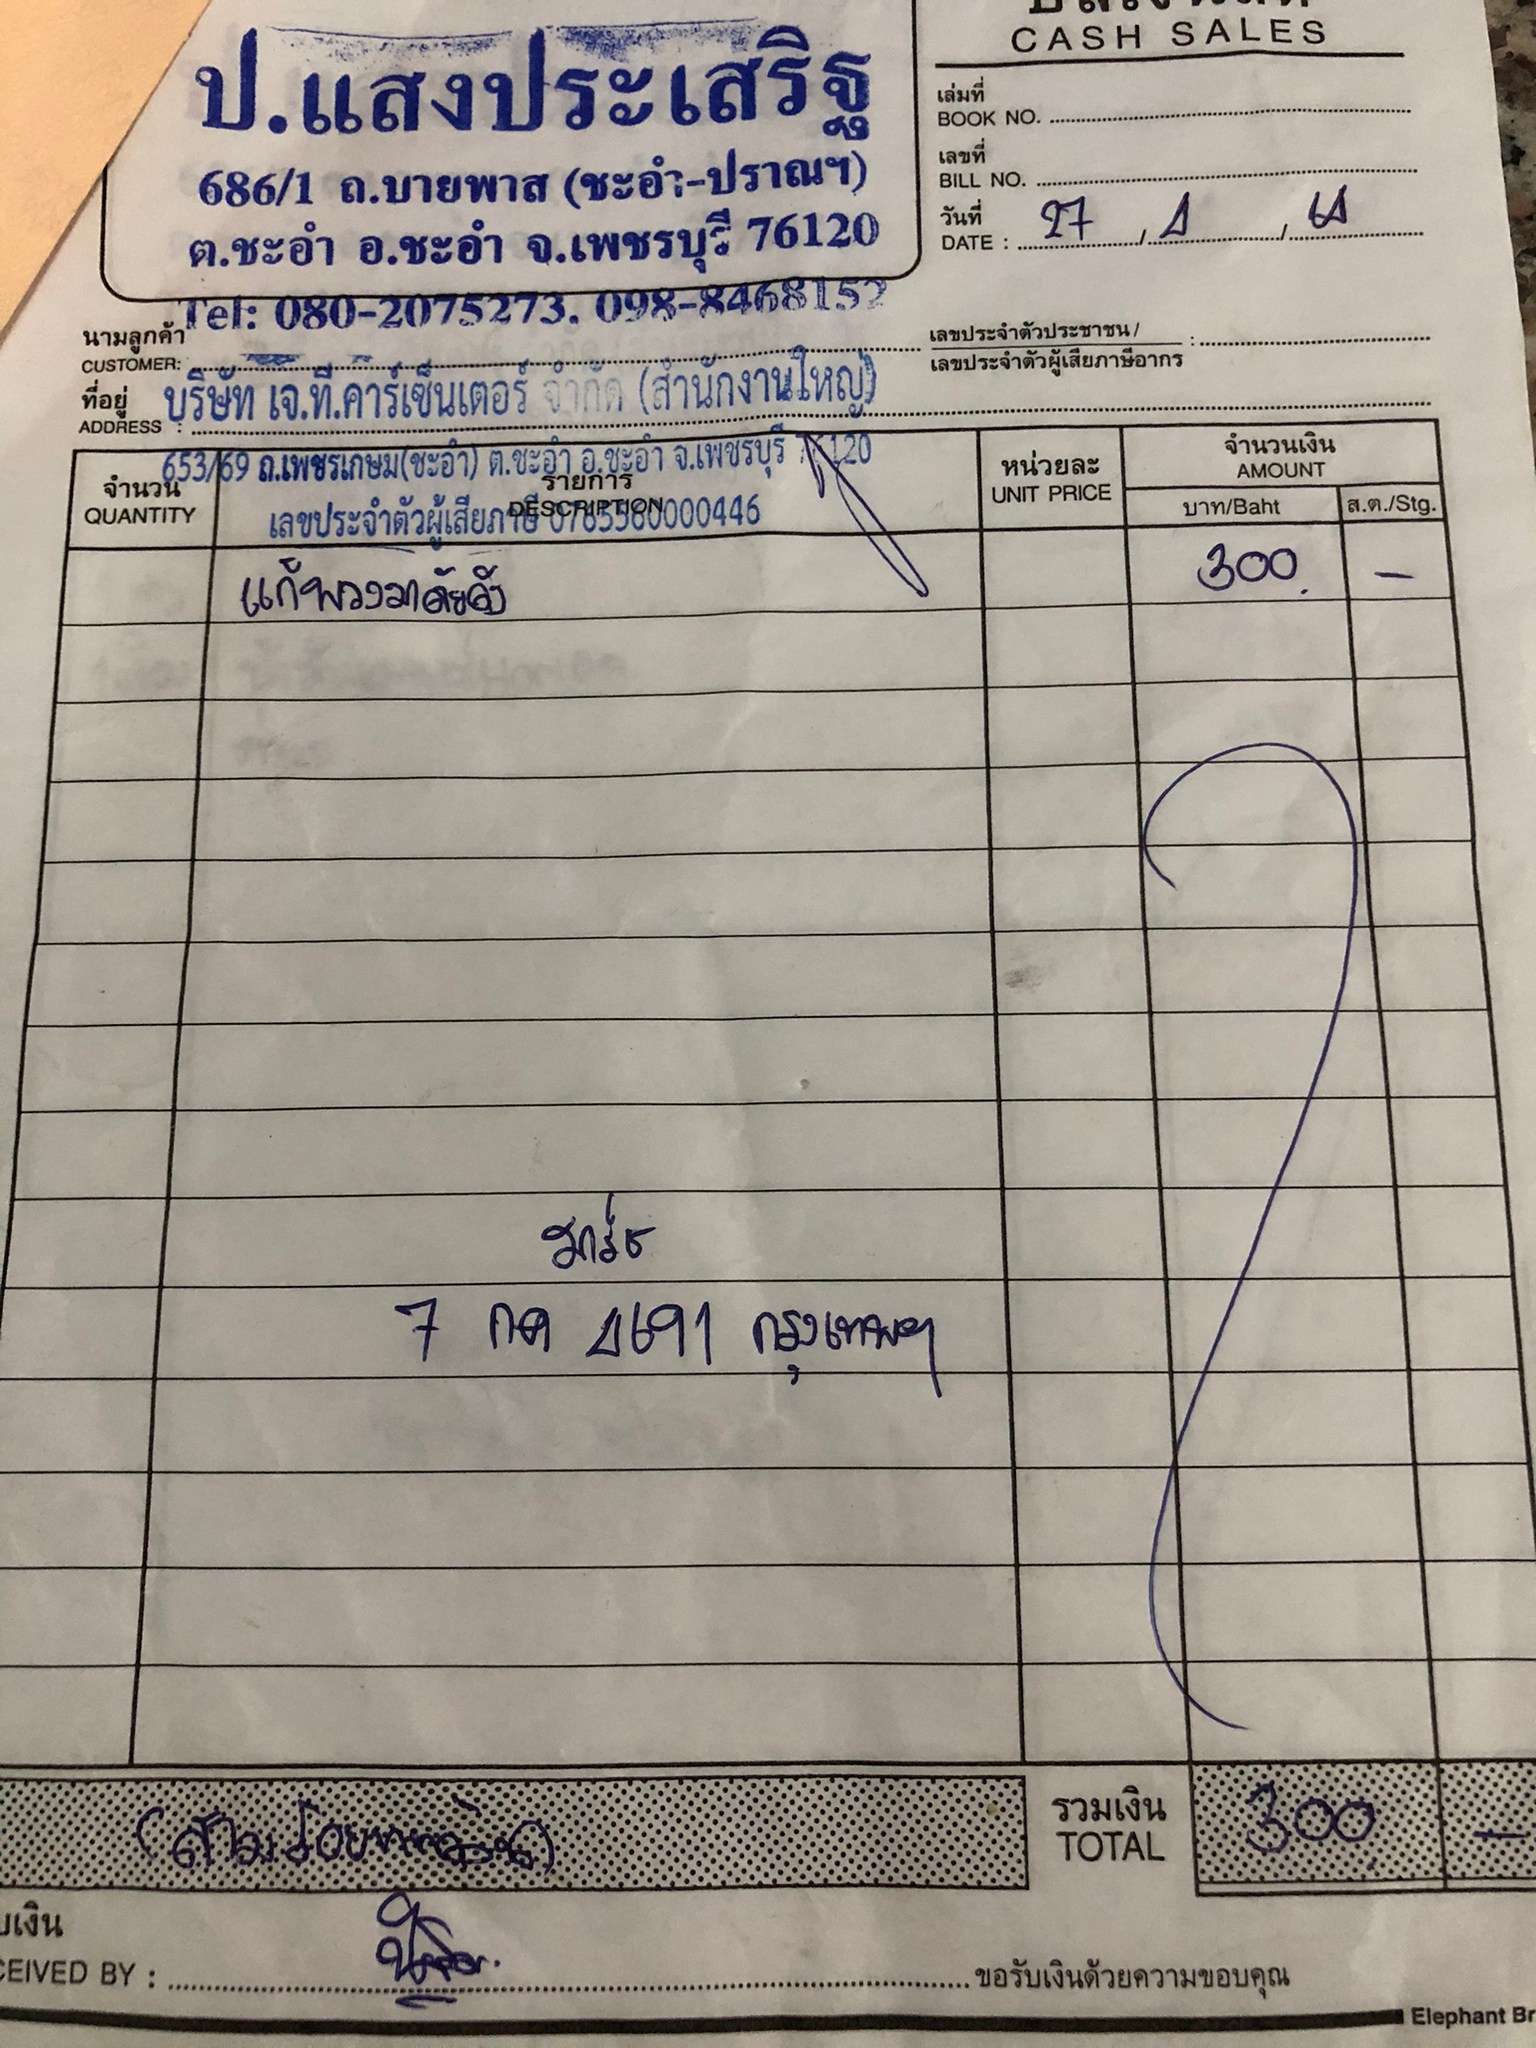 CASH SALES
ป.แสงประเสริฐ
686/1 ถ.บายพาส (ชะอำ-ปราณฯ)
ต.ชะอำ อ.ชะอำ จ.เพชรบุรี 76120
Tel: 080-2075273, 098-8468152
เล่มที่
BOOK NO.
เลขที่
BILL NO.
วันที่
DATE : 27 /
นามลูกค้า
CUSTOMER:
เลขประจำตัวประชาชน /
เลขประจำตัวผู้เสียภาษีอากร :
ที่อยู่
ADDRESS :
บริษัท เจ.ที.คาร์เซ็นเตอร์ จำกัด (สำนักงานใหญ่)
653/69 ถ.เพชรเกษม(ชะอำ) ต.ชะอำ อ.ชะอำ จ.เพชรบุรี 76120
เลขประจำตัวผู้เสียภาษี
จำนวน
QUANTITY
รายการ
DESCRIPTION
หน่วยละ
UNIT PRICE
จำนวนเงิน
AMOUNT
บาท/Baht ส.ต./Stg.
แก้พวงมาลัยดัง 300 –
มาร์ช
7 กค 1691 กรุงเทพฯ
(สามร้อยบาทถ้วน) รวมเงิน 300 –
TOTAL
บเงิน
CEIVED BY : ขอรับเงินด้วยความขอบคุณ
Elephant Br